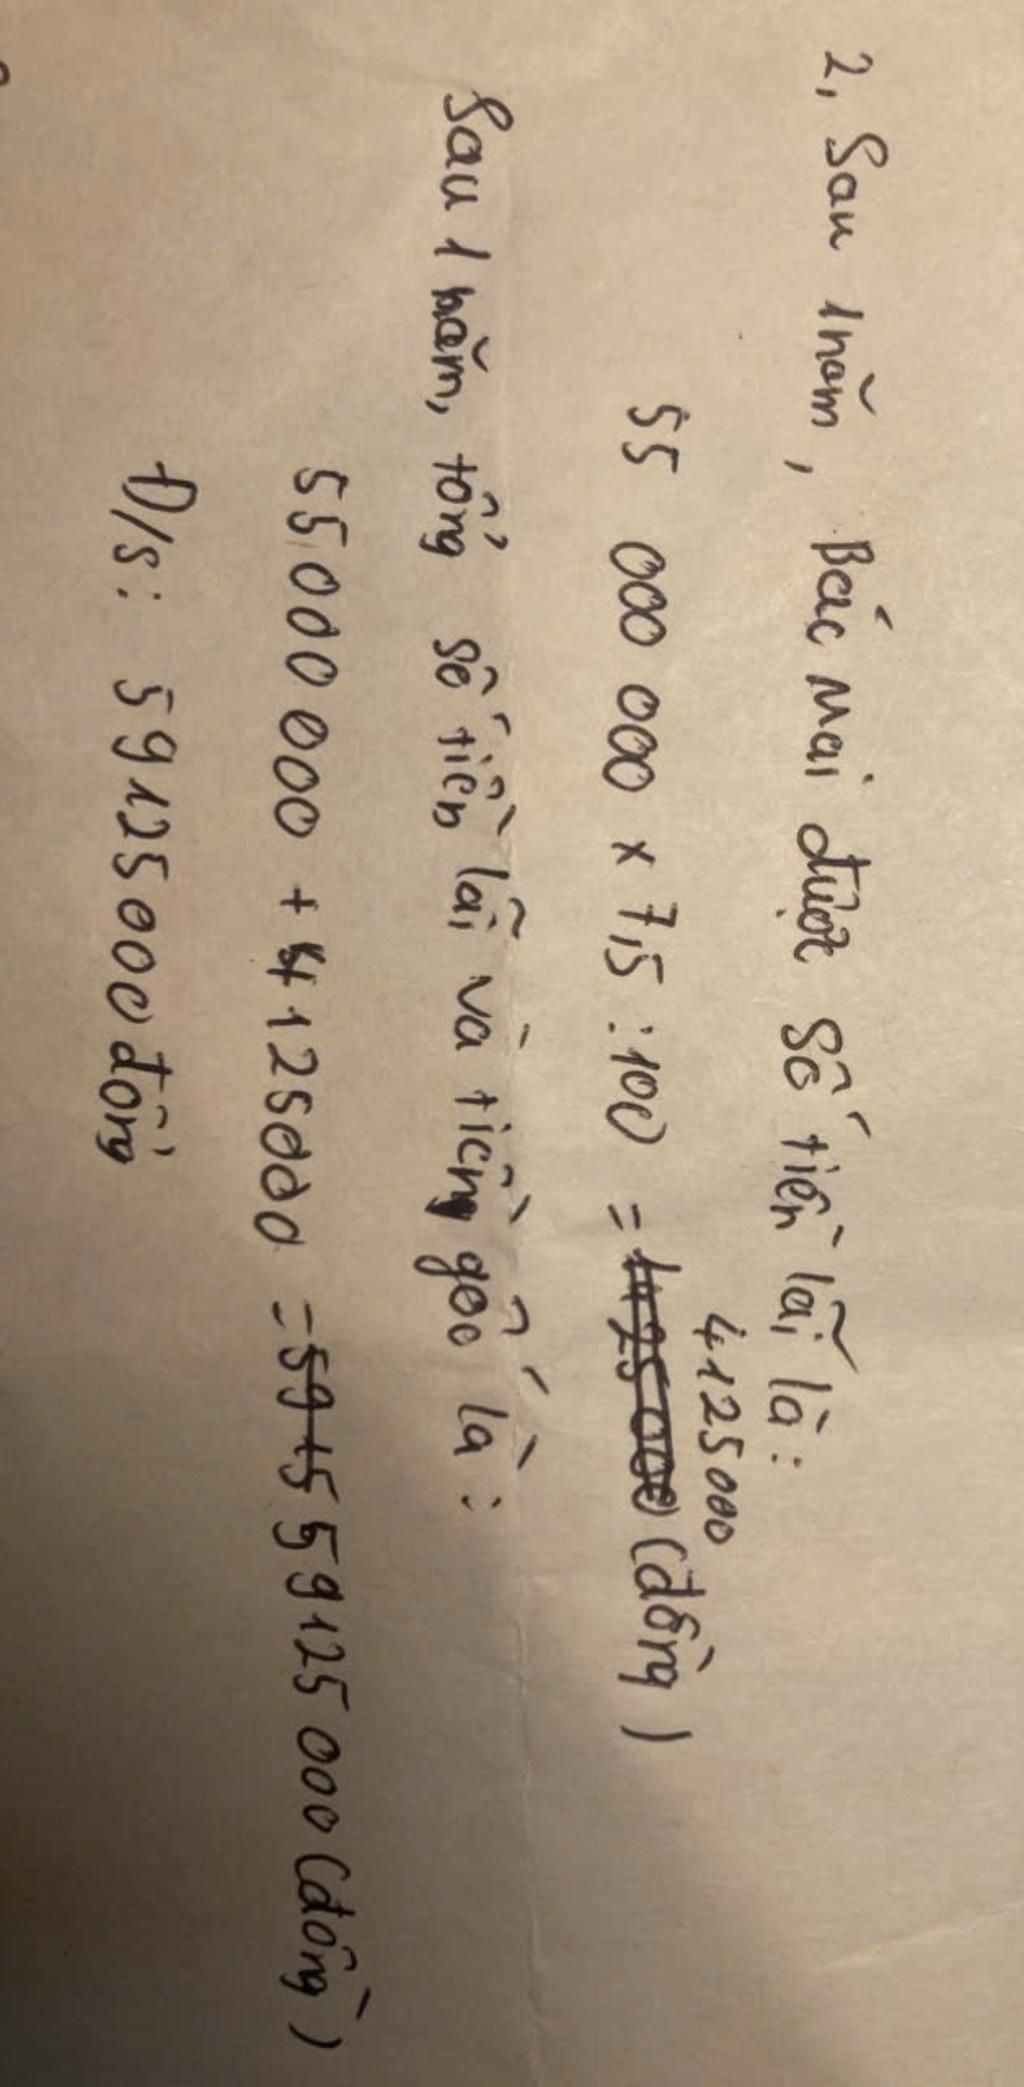 2, Sau 1 năm, Bác Mai được số tiền lãi là:
55 000 000 x 7,5 : 100 = 4125000 (đồng)
Sau 1 năm, tổng số tiền lãi và tiền gốc là:
55000 000 + 4125000 = 59125 000 (đồng)
Đ/s: 59125000 đồng